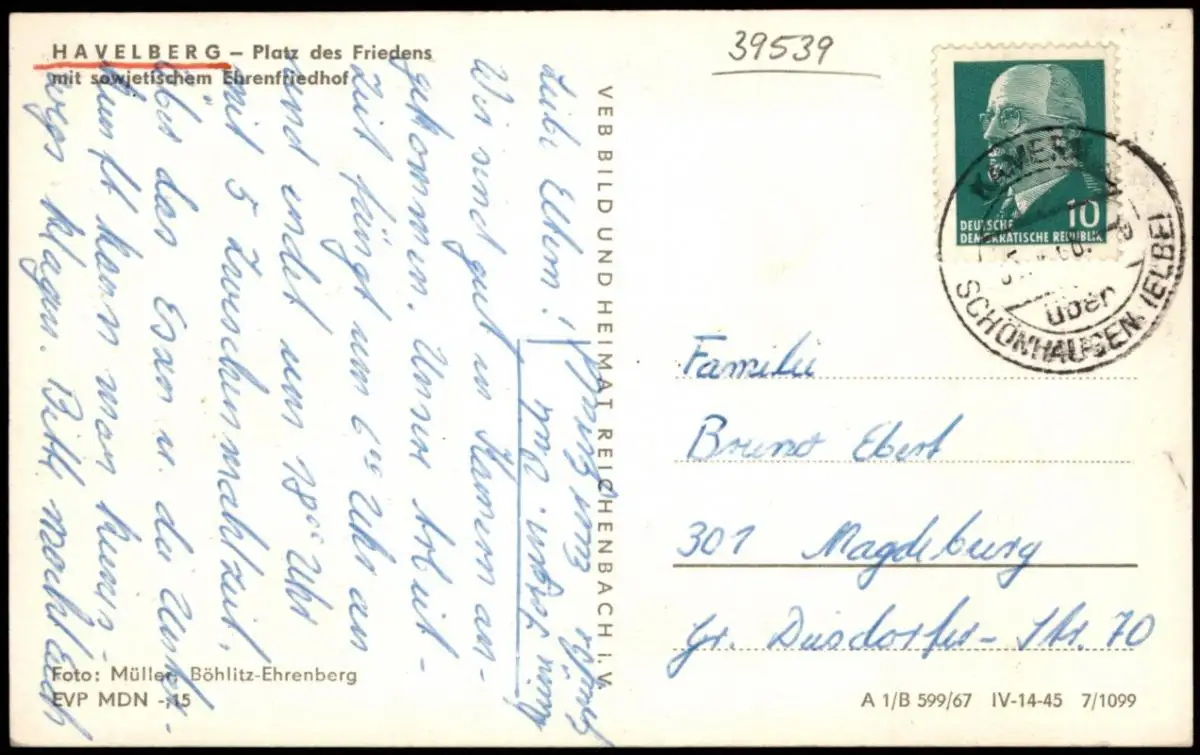 HAVELBERG – Platz des Friedens
mit sowjetischem Ehrenfriedhof
39539
DEUTSCHE
DEMOKRATISCHE REPUBLIK
10
KAMERN
über
SCHÖNHAUSEN (ELBE)
VEB BILD UND HEIMAT REICHENBACH i. V.
Liebe Eltern!
Wir sind gut in Kamern an-
gekommen. Unsere Arbeit-
zeit fängt um 6⁰⁰ Uhr an
und endet um 18⁰⁰ Uhr
mit 5 Zwischenmahlzeit,
über das Essen u. die Unter-
kunft kann man keines-
wegs klagen. Bitte macht Euch
Familie
Bruno Ebert
301 Magdeburg
Gr. Diesdorfer-Str. 70
Foto: Müller, Böhlitz-Ehrenberg
EVP MDN -,15
A 1/B 599/67 IV-14-45 7/1099